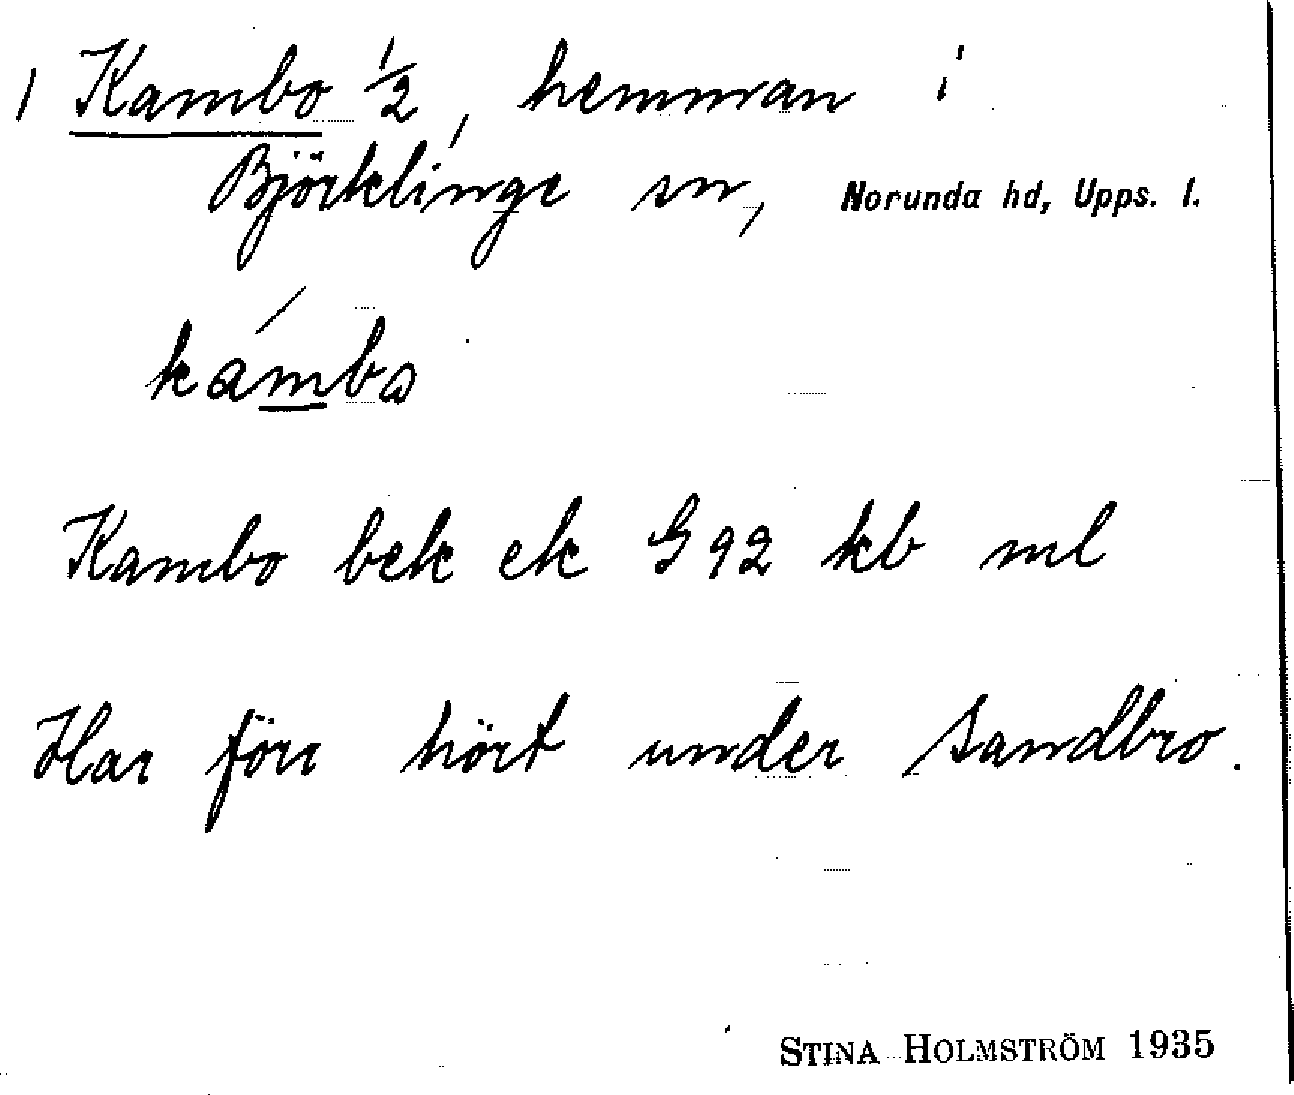 1 Kambo 1/2, hemman i
Björklinge sn, Norunda hd, Upps. l.
kámbω
Kambo bek ek G 92 kb ml
Har förr hört under Sandbro.
STINA HOLMSTRÖM 1935